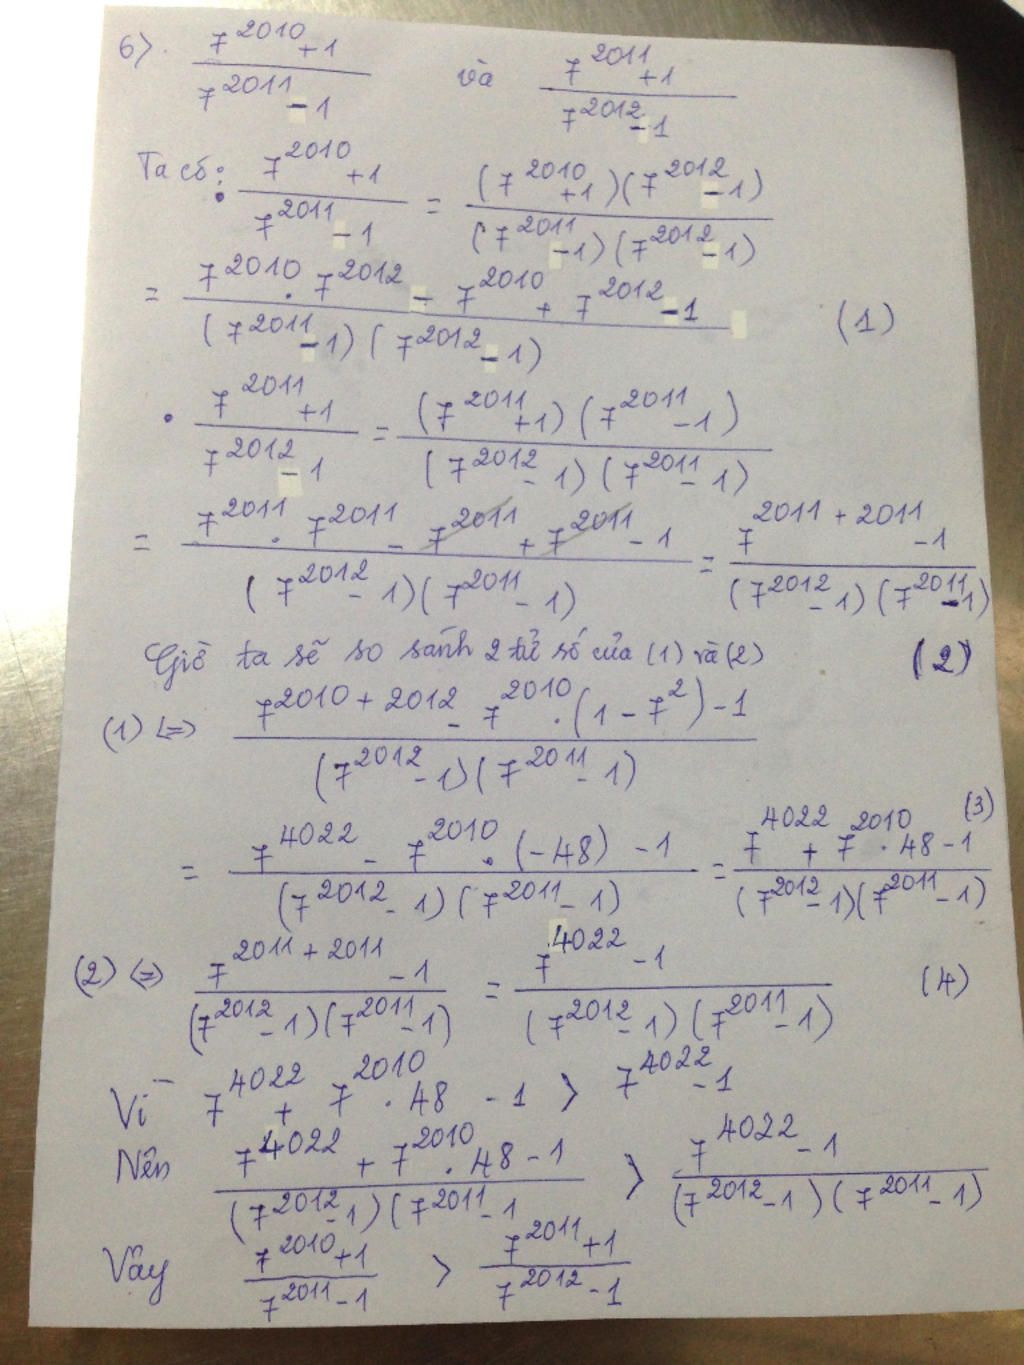 6) (7^2010 + 1)/(7^2011 - 1) và (7^2011 + 1)/(7^2012 - 1)
Ta có: • (7^2010 + 1)/(7^2011 - 1) = ((7^2010 + 1)(7^2012 - 1))/((7^2011 - 1)(7^2012 - 1))
= (7^2010 . 7^2012 - 7^2010 + 7^2012 - 1)/((7^2011 - 1)(7^2012 - 1)) (1)
• (7^2011 + 1)/(7^2012 - 1) = ((7^2011 + 1)(7^2011 - 1))/((7^2012 - 1)(7^2011 - 1))
= (7^2011 . 7^2011 - 7^2011 + 7^2011 - 1)/((7^2012 - 1)(7^2011 - 1)) = (7^(2011 + 2011) - 1)/((7^2012 - 1)(7^2011 - 1))
Giờ ta sẽ so sánh 2 tử số của (1) và (2) (2)
(1) <=> (7^(2010 + 2012) - 7^2010 . (1 - 7^2) - 1)/((7^2012 - 1)(7^2011 - 1))
= (7^4022 - 7^2010 . (-48) - 1)/((7^2012 - 1)(7^2011 - 1)) = (7^4022 + 7^2010 . 48 - 1)/((7^2012 - 1)(7^2011 - 1)) (3)
(2) <=> (7^(2011 + 2011) - 1)/((7^2012 - 1)(7^2011 - 1)) = (7^4022 - 1)/((7^2012 - 1)(7^2011 - 1)) (4)
Vì 7^4022 + 7^2010 . 48 - 1 > 7^4022 - 1
Nên (7^4022 + 7^2010 . 48 - 1)/((7^2012 - 1)(7^2011 - 1) > (7^4022 - 1)/((7^2012 - 1)(7^2011 - 1))
Vậy (7^2010 + 1)/(7^2011 - 1) > (7^2011 + 1)/(7^2012 - 1)